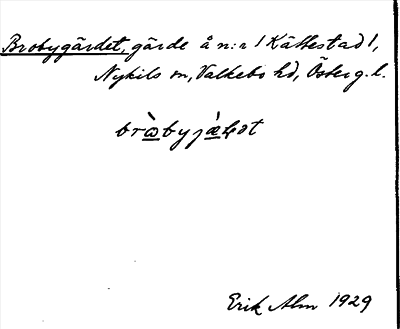 Brobygärdet, gärde å n:r 1 Kättestad 1,
Nykils sn, Valkebo hd, Österg. l.
Erik Alm 1929